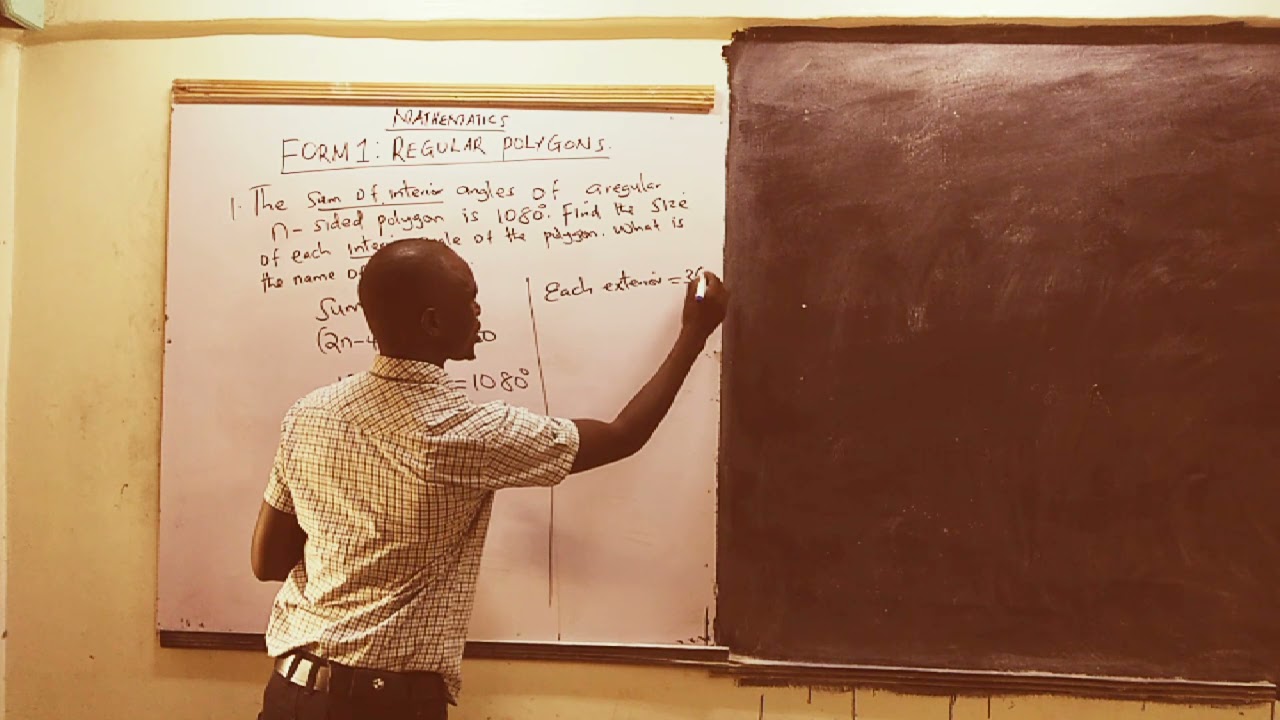 MATHEMATICS
FORM 1: REGULAR POLYGONS.
1. The Sum of interior angles of aregular
n-sided polygon is 1080°. Find the size
of each of the polygon. What is
the name
Sum
(2n-4
= 1080°
Each exterior = 36